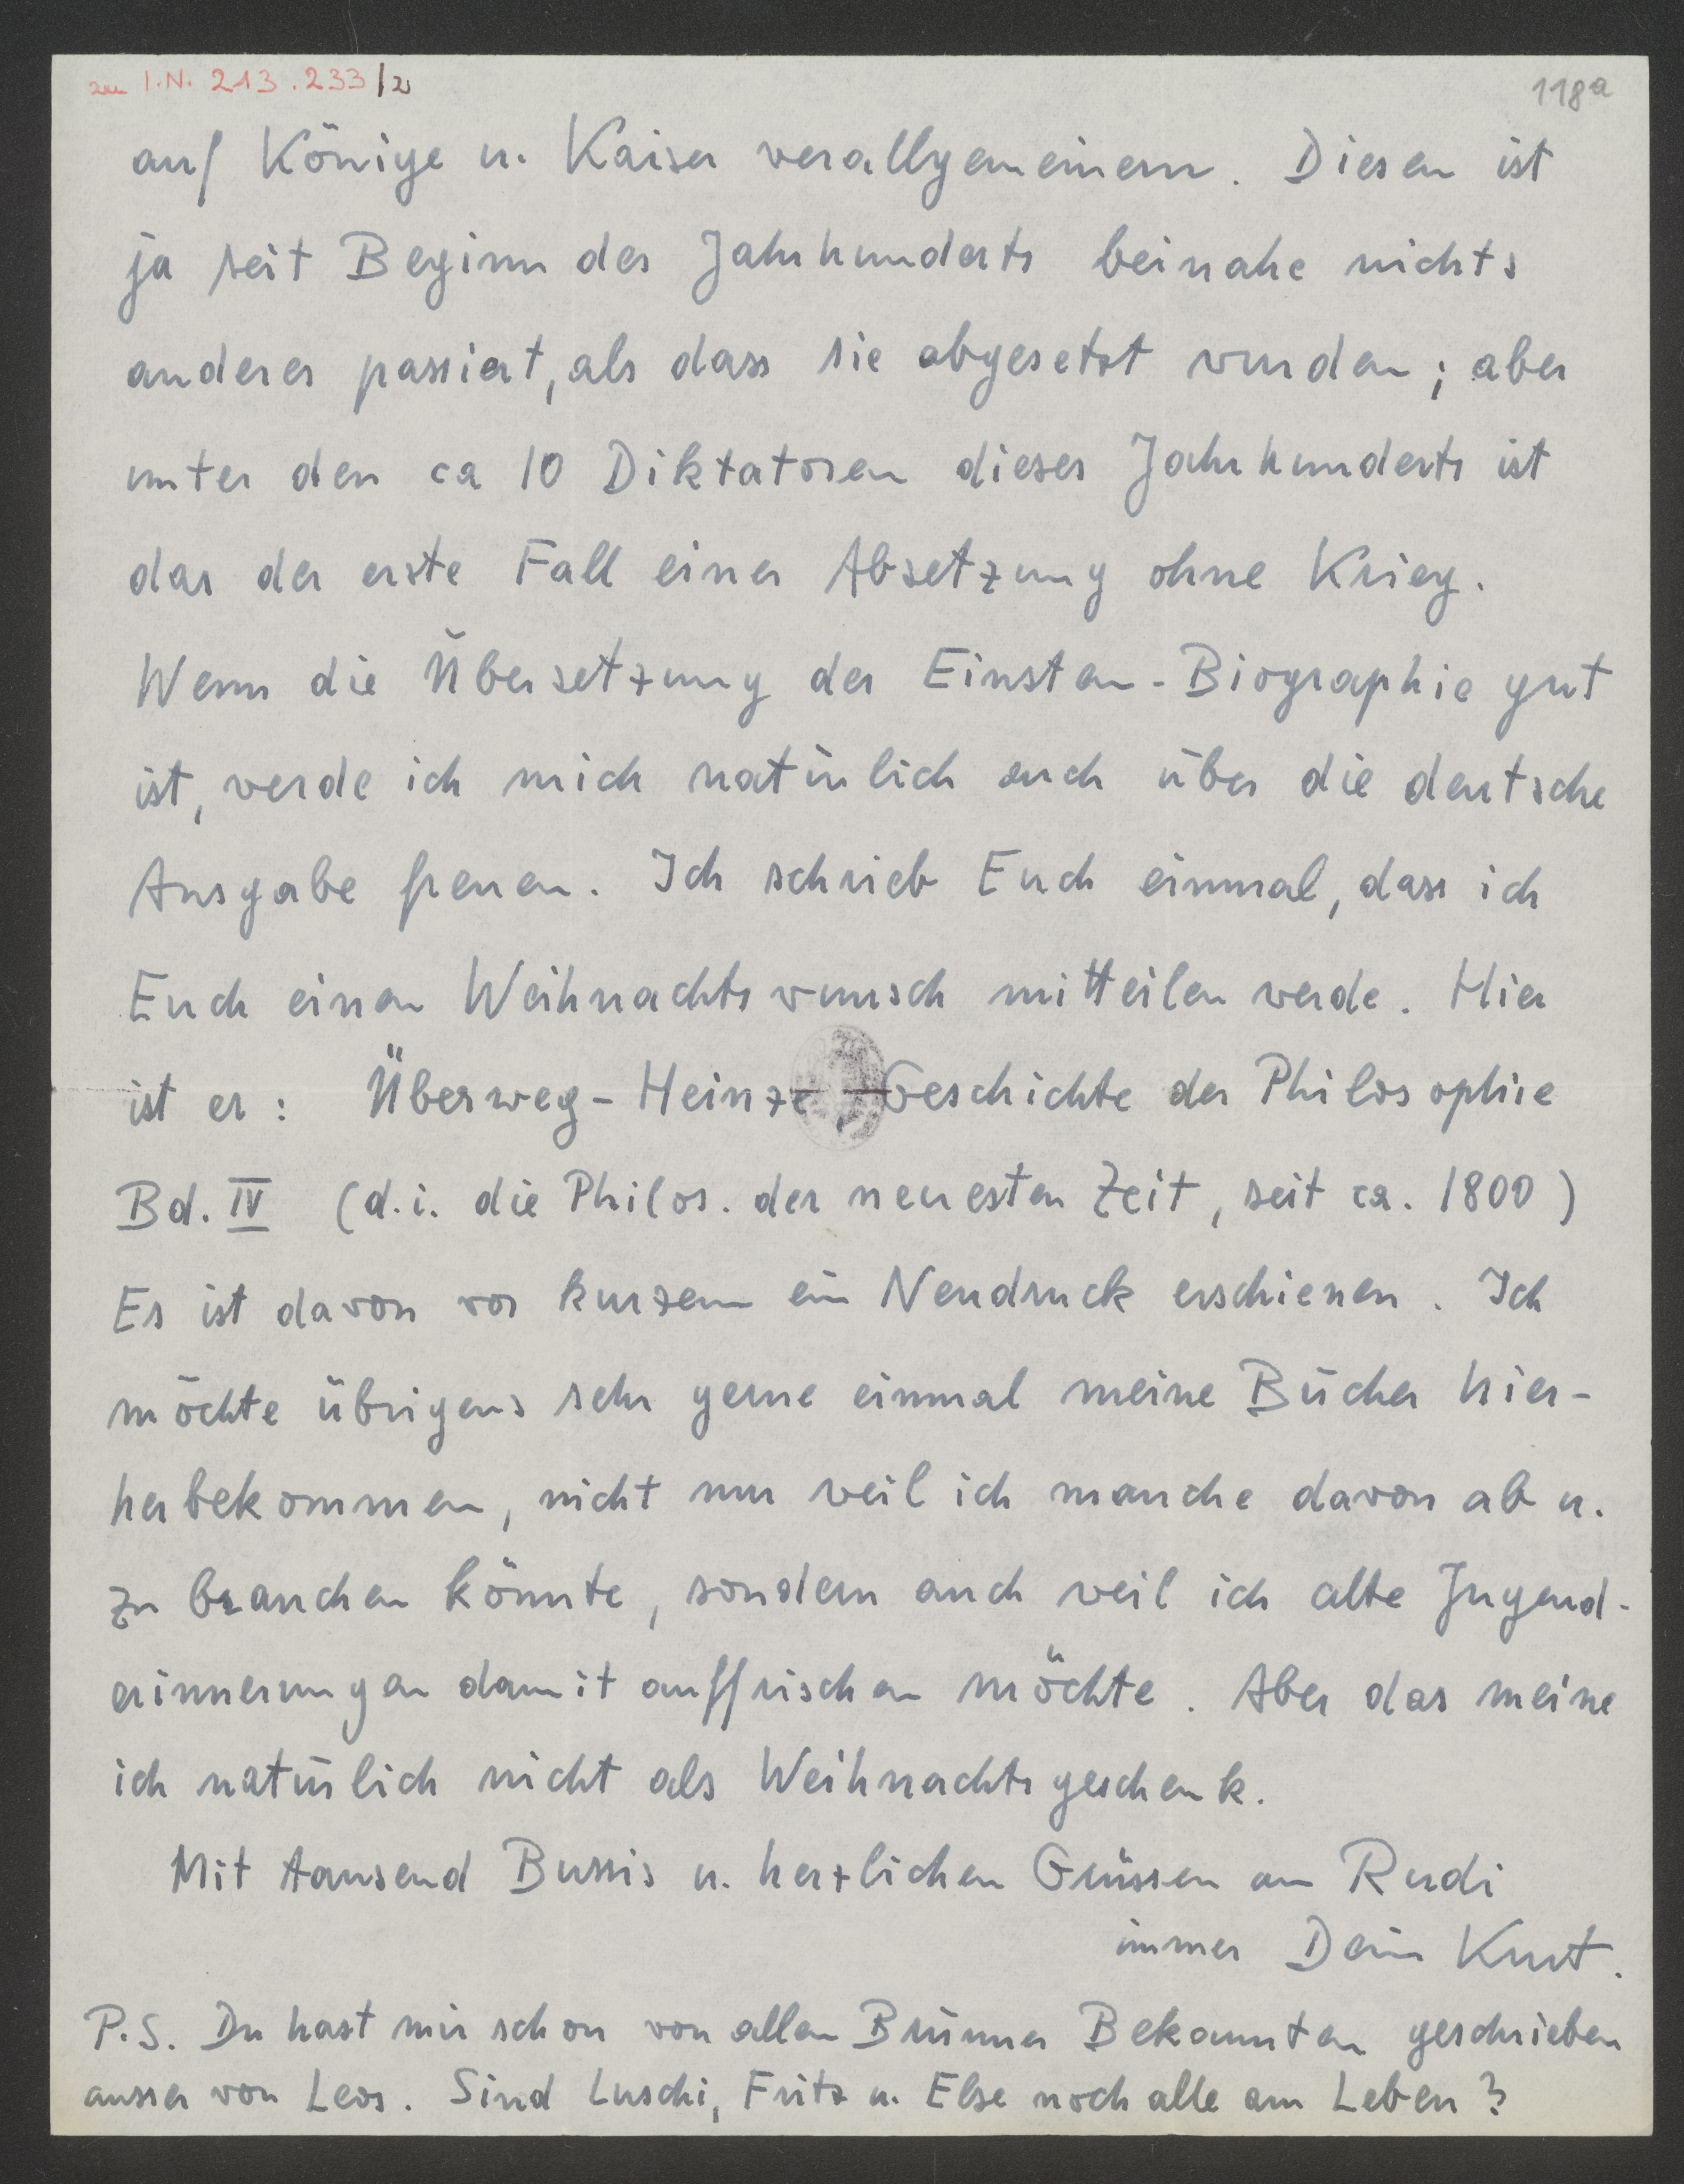 zu I.N. 213.233/2
118a
auf Könige u. Kaiser verallgemeinern. Diesen ist
ja seit Beginn des Jahrhunderts beinahe nichts
anderes passiert, als dass sie abgesetzt wurden; aber
unter den ca 10 Diktatoren dieses Jahrhunderts ist
das der erste Fall einer Absetzung ohne Krieg.
Wenn die Übersetzung der Einsten-Biographie gut
ist, werde ich mich natürlich auch über die deutsche
Ausgabe freuen. Ich schrieb Euch einmal, dass ich
Euch einen Weihnachtswunsch mitteilen werde. Hier
ist er: Überweg-Heinze, Geschichte der Philosophie
Bd. IV (d.i. die Philos. der neuesten Zeit, seit ca. 1800)
Es ist davon vor kurzem ein Neudruck erschienen. Ich
möchte übrigens sehr gerne einmal meine Bücher hier-
herbekommen, nicht nur weil ich manche davon ab u.
zu brauchen könnte, sondern auch weil ich alte Jugend-
erinnerungen damit auffrischen möchte. Aber das meine
ich natürlich nicht als Weihnachtsgeschenk.
Mit tausend Bussis u. herzlichen Grüssen an Rudi
immer Dein Kurt.
P.S. Du hast mir schon von allen Brünner Bekannten geschrieben
ausser von Leos. Sind Luschi, Fritz u. Else noch alle am Leben?